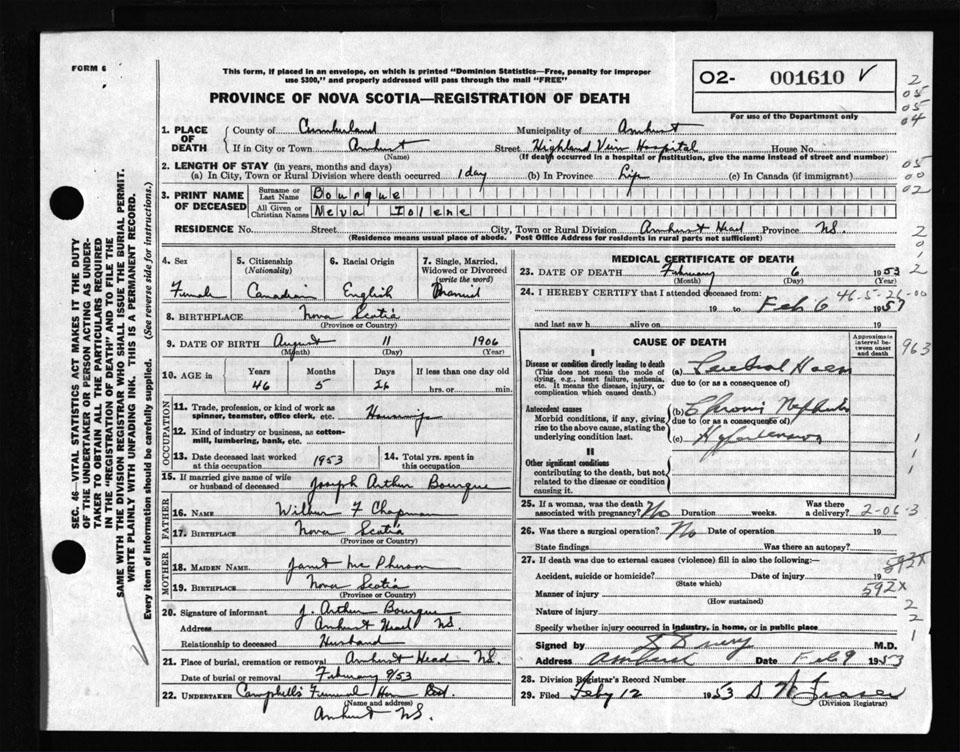 FORM 6
This form, if placed in an envelope, on which is printed "Dominion Statistics—Free, penalty for improper
use $300," and properly addressed will pass through the mail "FREE"
PROVINCE OF NOVA SCOTIA—REGISTRATION OF DEATH
O2- 001610 V
For use of the Department only
2
05
05
04
05
00
02
2
0
1
2
SEC. 46—VITAL STATISTICS ACT MAKES IT THE DUTY
OF THE UNDERTAKER OR PERSON ACTING IS UNDER-
TAKER TO OBTAIN ALL THE PARTICULARS REQUIRED
IN THE "REGISTRATION OF DEATH" AND TO FILE THE
SAME WITH THE DIVISION REGISTRAR WHO SHALL ISSUE THE BURIAL PERMIT.
WRITE PLAINLY WITH UNFADING INK. THIS IS A PERMANENT RECORD.
Every item of information should be carefully supplied. (See reverse side for instructions.)
1. PLACE OF DEATH
County of Cumberland Municipality of Amherst
If in City or Town Amherst Street Highland View Hospital House No.
(Name) (If death occurred in a hospital or institution, give the name instead of street and number)
2. LENGTH OF STAY (in years, months and days)
(a) In City, Town or Rural Division where death occurred 1 day (b) In Province Life (c) In Canada (if immigrant)
3. PRINT NAME OF DECEASED
Surname or Last Name Bourque
All Given or Christian Names Neva Iolene
RESIDENCE No. Street City, Town or Rural Division Amherst Head Province N.S.
(Residence means usual place of abode. Post Office Address for residents in rural parts not sufficient)
4. Sex
Female
5. Citizenship
(Nationality)
Canadian
6. Racial Origin
English
7. Single, Married,
Widowed or Divorced
(write the word)
Married
8. BIRTHPLACE Nova Scotia
(Province or Country)
9. DATE OF BIRTH August 11 1906
(Month) (Day) (Year)
10. AGE in
Years Months Days If less than one day old
46 5 26 hrs. or min.
OCCUPATION
11. Trade, profession, or kind of work as
spinner, teamster, office clerk, etc. Housewife
12. Kind of industry or business, as cotton-
mill, lumbering, bank, etc.
13. Date deceased last worked
at this occupation 1953
14. Total yrs. spent in
this occupation
15. If married give name of wife
or husband of deceased Joseph Arthur Bourque
FATHER
16. Name Wilbur F Chapman
17. Birthplace Nova Scotia
(Province or Country)
MOTHER
18. MAIDEN NAME Janet McPherson
19. BIRTHPLACE Nova Scotia
(Province or Country)
20. Signature of informant J. Arthur Bourque
Address Amherst Head N.S.
Relationship to deceased Husband
21. Place of burial, cremation or removal Amherst Head N.S.
Date of burial or removal February 9/53
22. UNDERTAKER Campbell's Funeral Home
(Name and address)
Amherst N.S.
MEDICAL CERTIFICATE OF DEATH
23. DATE OF DEATH February 6 1953
(Month) (Day)
24. I HEREBY CERTIFY that I attended deceased from: 46-5-26-00
19 to Feb 6 195
and last saw h alive on 19
CAUSE OF DEATH
Approximate interval between onset and death
963
I
Disease or condition directly leading to death
(This does not mean the mode of
dying, e.g., heart failure, asthenia,
etc. It means the disease, injury, or
complication which caused death.)
(a) Cerebral Haem
due to (or as a consequence of)
Antecedent causes
Morbid conditions, if any, giving
rise to the above cause, stating the
underlying condition last.
(b) Chronic Nephritis
due to (or as a consequence of)
(c) Hypertension
1
1
1
II
Other significant conditions
contributing to the death, but not
related to the disease or condition
causing it.
25. If a woman, was the death
associated with pregnancy? No Duration weeks. Was there
a delivery? 2-06-3
26. Was there a surgical operation? No Date of operation 19
State findings Was there an autopsy?
27. If death was due to external causes (violence) fill in also the following:— 592X
Accident, suicide or homicide? Date of injury 19
(State which) 592X
Manner of injury
(How sustained)
Nature of injury 2
2
Specify whether injury occurred in industry, in home, or in public place 1
Signed by M.D.
Address Amherst Date Feb 9 1953
28. Division Registrar's Record Number
29. Filed Feby 12 1953 D. N. Fraser
(Division Registrar)